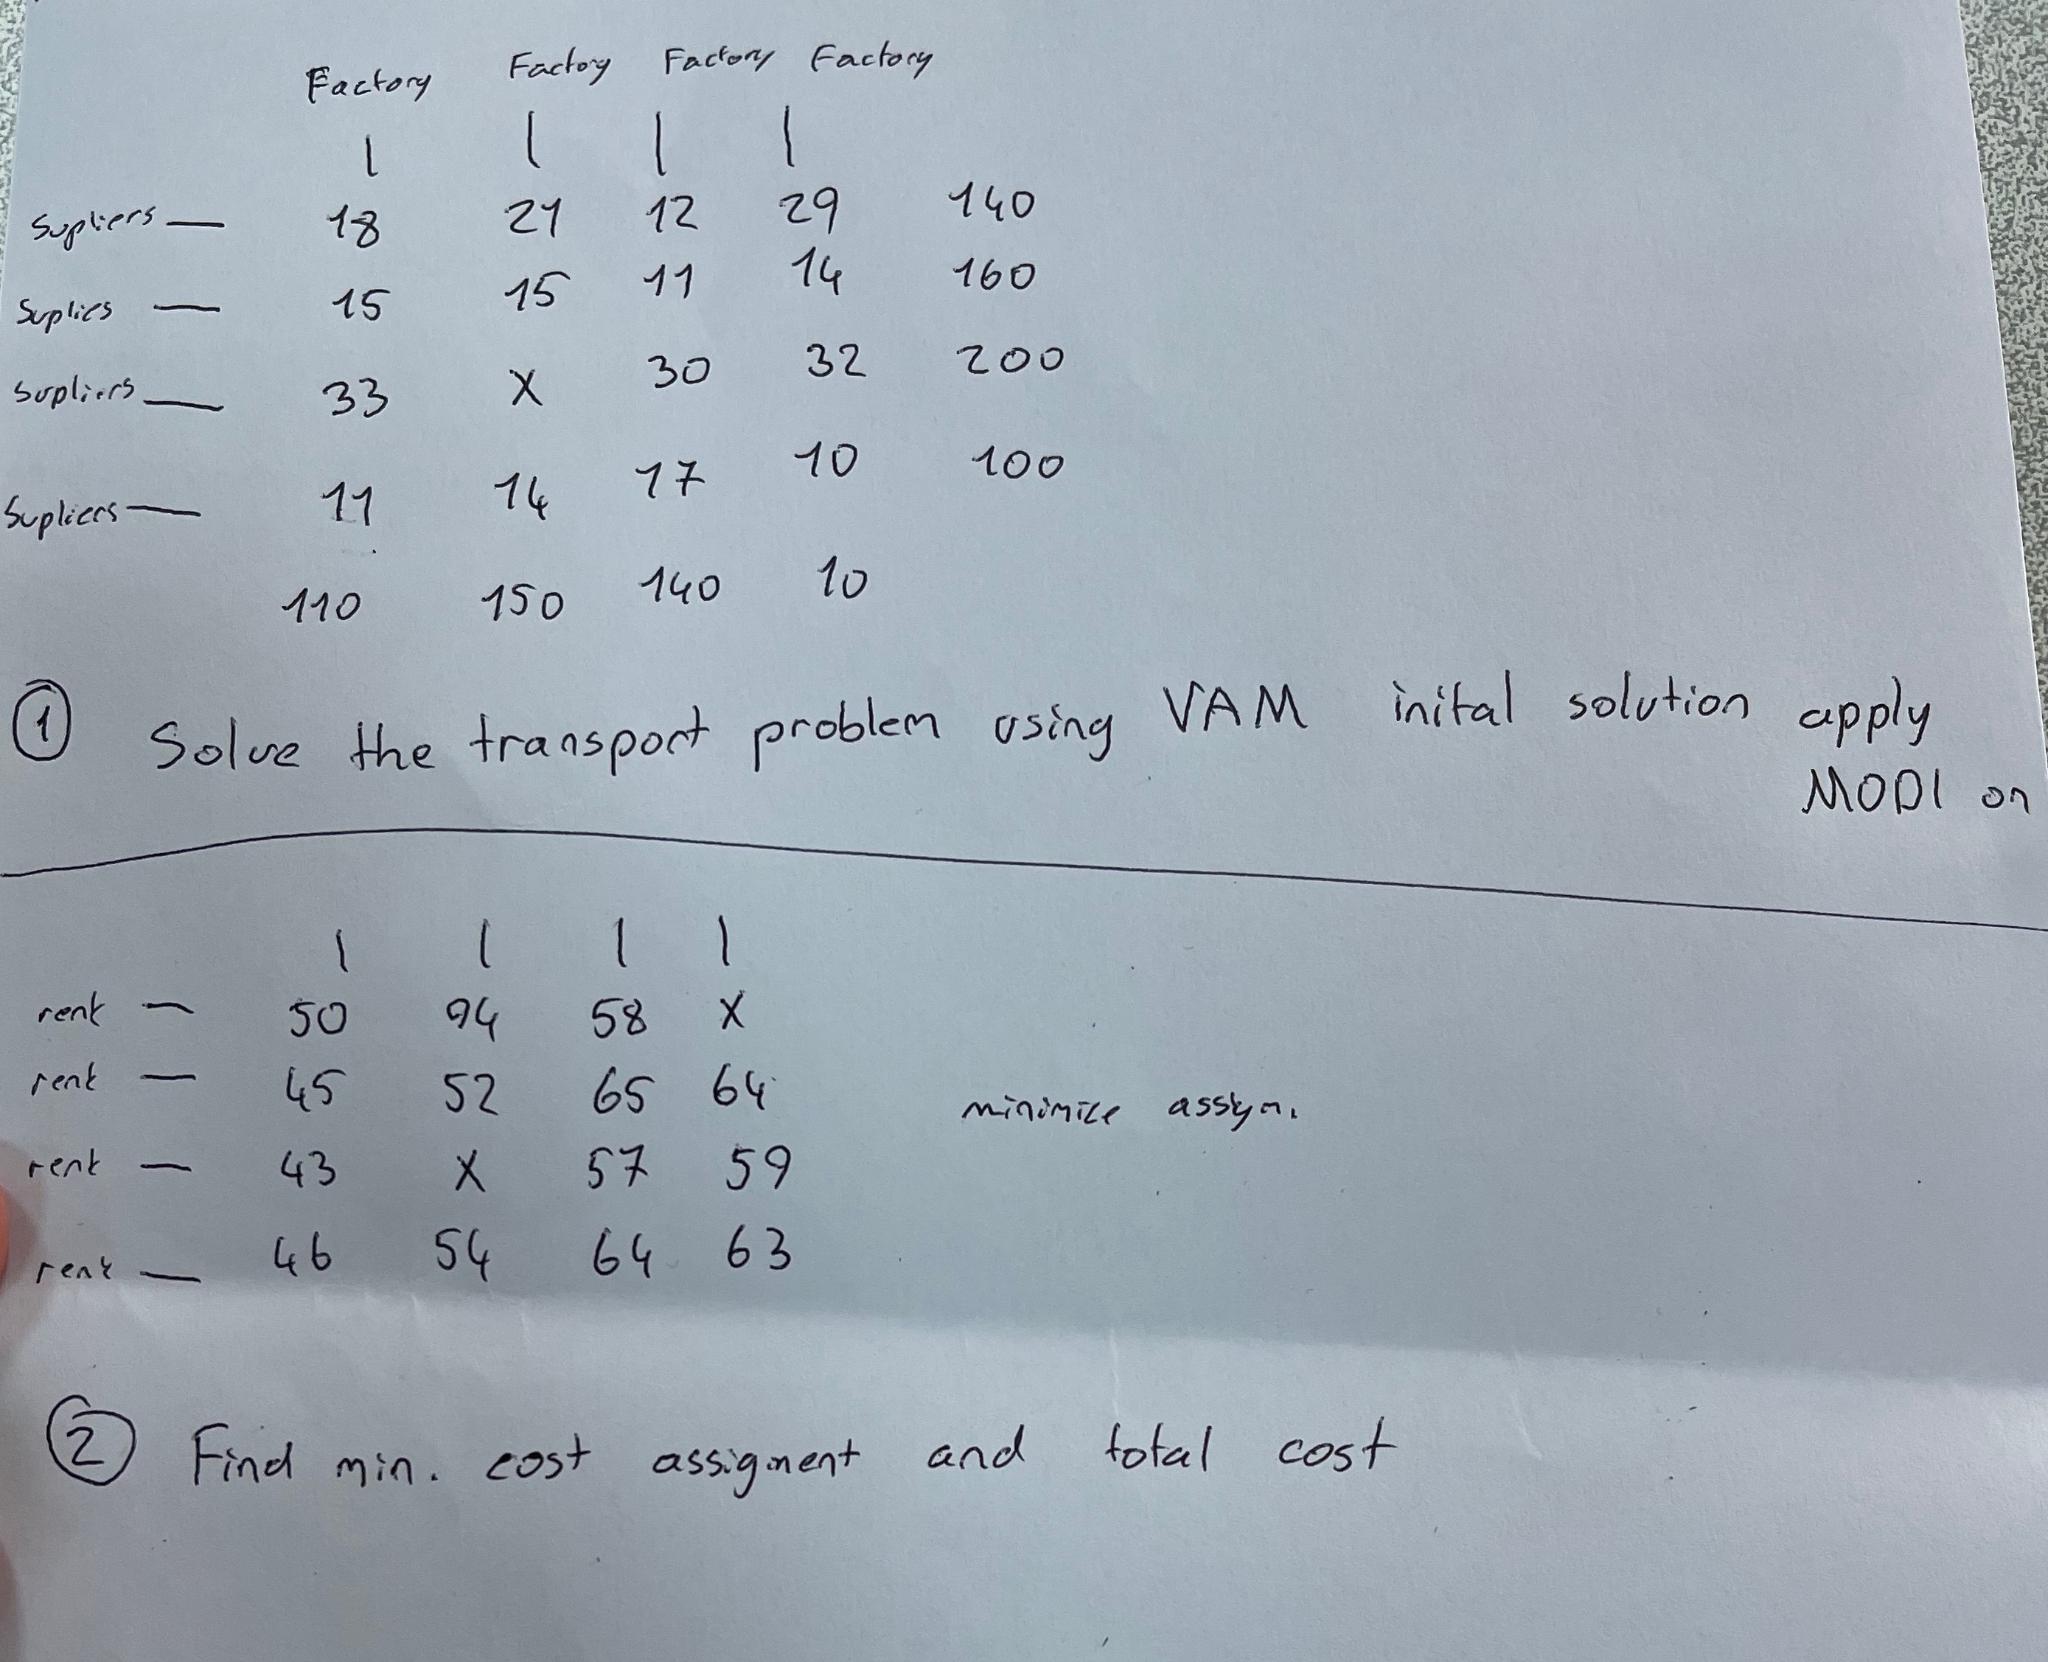 Factory Factoy Factory Factory
| | | |
Supliers — 18 21 12 29 140
Suplies — 15 15 11 14 160
Supliers — 33 X 30 32 200
Supliers — 11 14 17 10 100
110 150 140 10
① Solve the transport problem using VAM inital solution apply
MODI on
| | | |
rent — 50 94 58 X
rent — 45 52 65 64 minimice assign.
rent — 43 X 57 59
rent — 46 54 64 63
② Find min. cost assigment and total cost